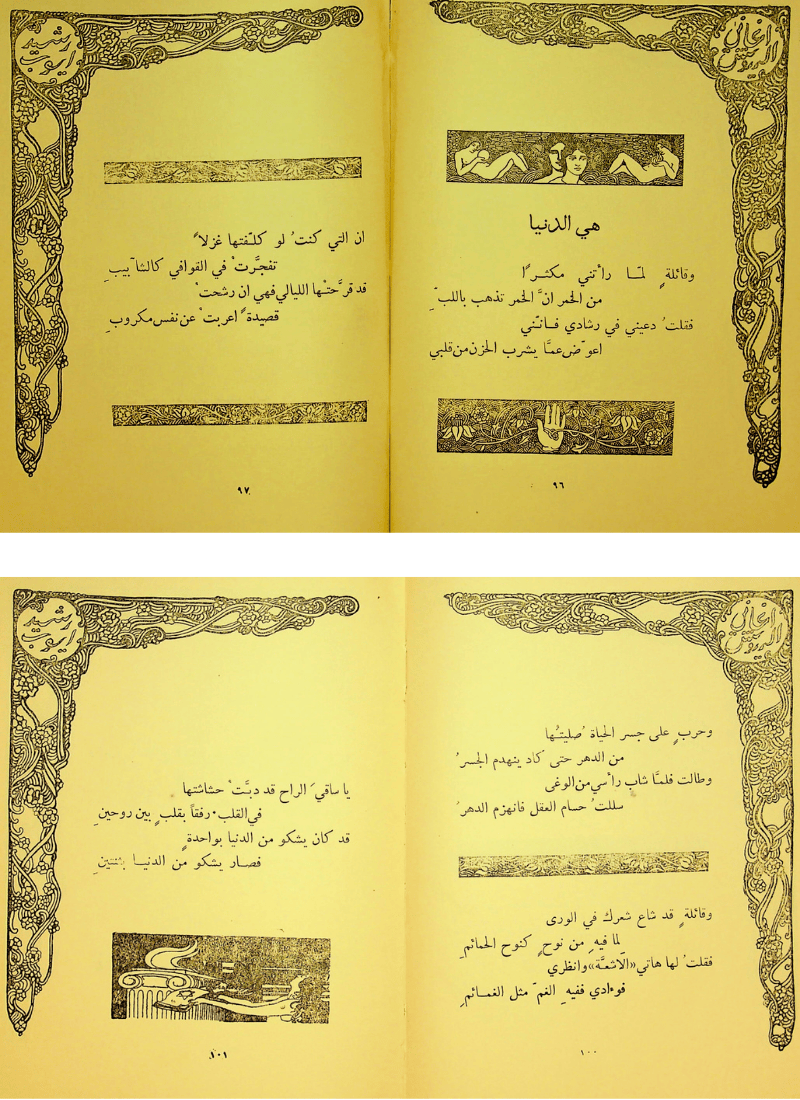 اغاني
الدرويش
هي الدنيا
وقائلةٍ لمّا رأتني مكثراً
من الخمر انَّ الخمر تذهب باللبّ
فقلتُ دعيني في رشادي فانّني
اعوّض عمَّا يشرب الحزن من قلبي
٩٦
رشيد
ايوب
ان التي كنتُ لو كلّفتها غزلاً
تفجَّرتْ في القوافي كالشآبيبِ
قد قرَّحتْها الليالي فهي ان رشحتْ
قصيدةً اعربتْ عن نفس مكروبِ
٩٧
اغاني
الدرويش
وحربٍ على جسر الحياة صُليتُها
من الدهر حتى كاد ينهدم الجسرُ
وطالت فلمَّا شاب رأسي من الوغى
سللتُ حسام العقل فانهزم الدهرُ
وقائلةٍ قد شاع شعرك في الورى
لما فيهِ من نوحٍ كنوح الحمائمِ
فقلتُ لها هاتي «الاشعَّة» وانظري
فوءادي ففيهِ الغمّ مثل الغمائمِ
١٠٠
رشيد
ايوب
يا ساقيَ الراح قد دبَّتْ حشاشتها
في القلب. رفقاً بقلبٍ بين روحينِ
قد كان يشكو من الدنيا بواحدةٍ
فصار يشكو من الدنيا بثنتينِ
١٠١